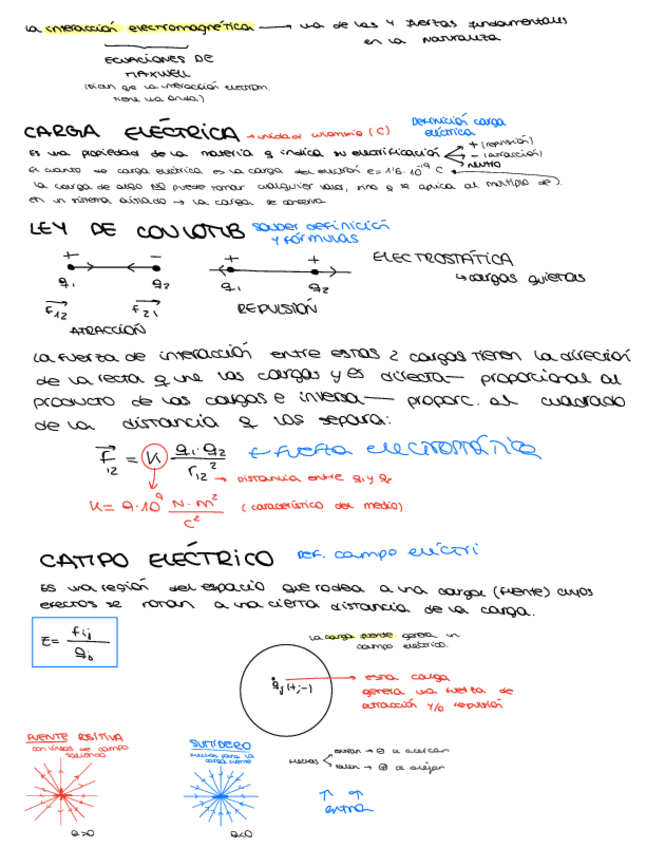 La interacción electromagnética → una de las 4 fuerzas fundamentales
en la naturaleza
ECUACIONES DE
MAXWELL
(dicen que la interacción electrom.
tiene una onda)
CARGA ELÉCTRICA → unidad culombio (C)
Definición carga
eléctrica
Es una propiedad de la materia q indica su electrificación
+ (repulsión)
- (atracción)
neutro
El cuanto de carga eléctrica es la carga del electrón e = 1'6·10⁻¹⁹ C
la carga de algo NO puede tomar cualquier valor, sino q se aplica al multiplo de
en un sistema aislado → la carga se conserva
LEY DE COULOMB saber definición
y fórmulas
+ - + +
q₁ q₂ q₁ q₂
F₁₂ F₂₁
ATRACCIÓN
REPULSIÓN
ELECTROSTÁTICA
↳ cargas quietas
La fuerza de interacción entre estas 2 cargas tienen la direción
de la recta q une las cargas y es directa— proporcional al
producto de las cargas e inversa— proporc. al cuadrado
de la distancia q las separa:
F₁₂ = K q₁·q₂ / r₁₂² ← fuerza electrostática
→ Distancia entre q₁ y q₂
K = 9·10⁹ N·m² / C² (característico del medio)
CAMPO ELÉCTRICO DEF. campo eléctri
Es una región del espacio que rodea a una carga (fuente) cuyos
efectos se notan a una cierta distancia de la carga.
E = Fij / qj
La carga fuente genera un
campo eléctrico.
qj (+;-)
esta carga
genera una fuerza de
atracción y/o repulsión
FUENTE POSITIVA
con líneas de campo
saliendo
Q>0
SUMIDERO
flechas para la
carga fuente
Q<0
flechas
entran → ⊖ se acercan
salen → ⊕ se alejan
entra